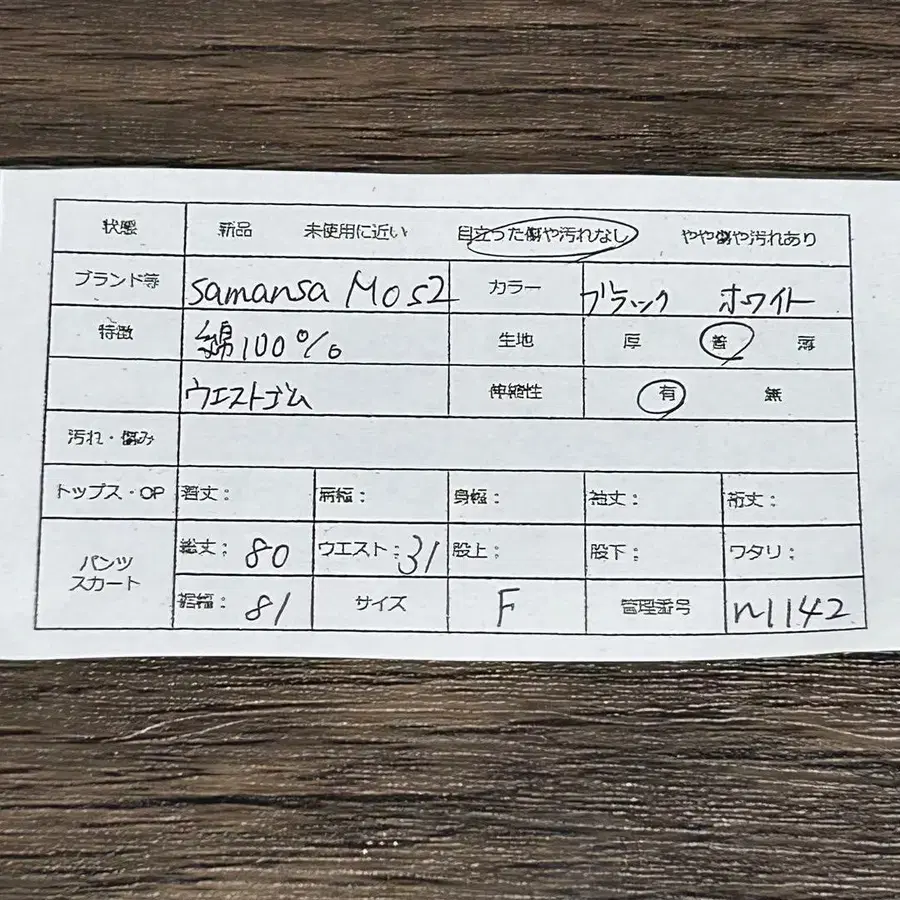 状態 新品 未使用に近い 目立った傷や汚れなし やや傷や汚れあり
ブランド等 samansa Mos2 カラー ブラック ホワイト
特徴 綿100% 生地 厚 普 薄
ウエストゴム 伸縮性 有 無
汚れ・傷み
トップス・OP 着丈: 肩幅: 身幅: 袖丈: 裄丈:
パンツ スカート 総丈: 80 ウエスト: 31 股上: 股下: ワタリ:
裾幅: 81 サイズ F 管理番号 n1142